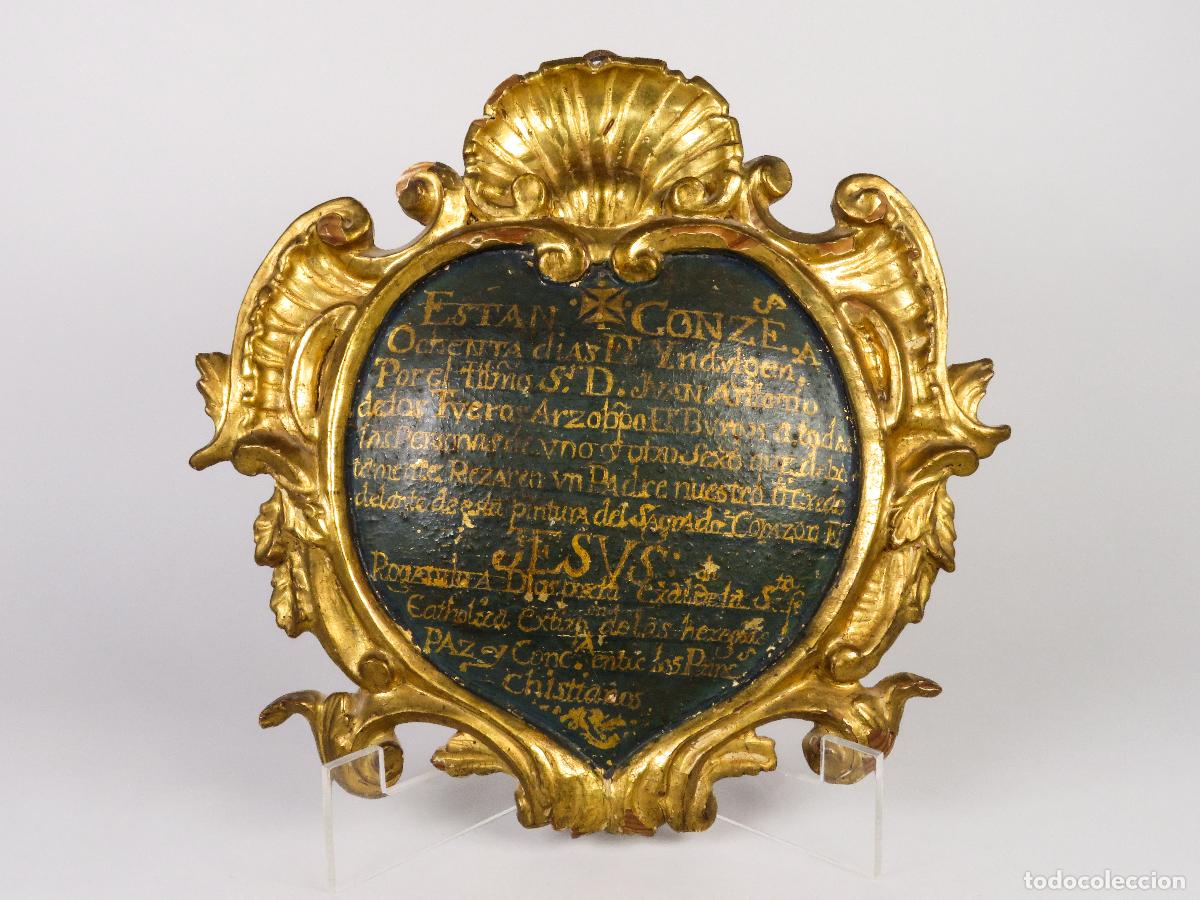 ESTAN ✠ CONZES. A
OcHENTA dias DE YndvlgenS,
Por el Illmo Sr. D. JVAN Antonio
de los Tveros Arzobpo DE Bvrgos a todas
las Personas de vno y otro Sexo que debo
tamente Rezaren vn PAdre nuestro o Credo
delante de esta pintura del SAgrado Corazon DE
JESVS.
Rogando A Dios por la Exalon de la Sta. fe
Catholica Extiron de las heregias
PAZ y Conca. entre los Princs
Chistianos
todocoleccion